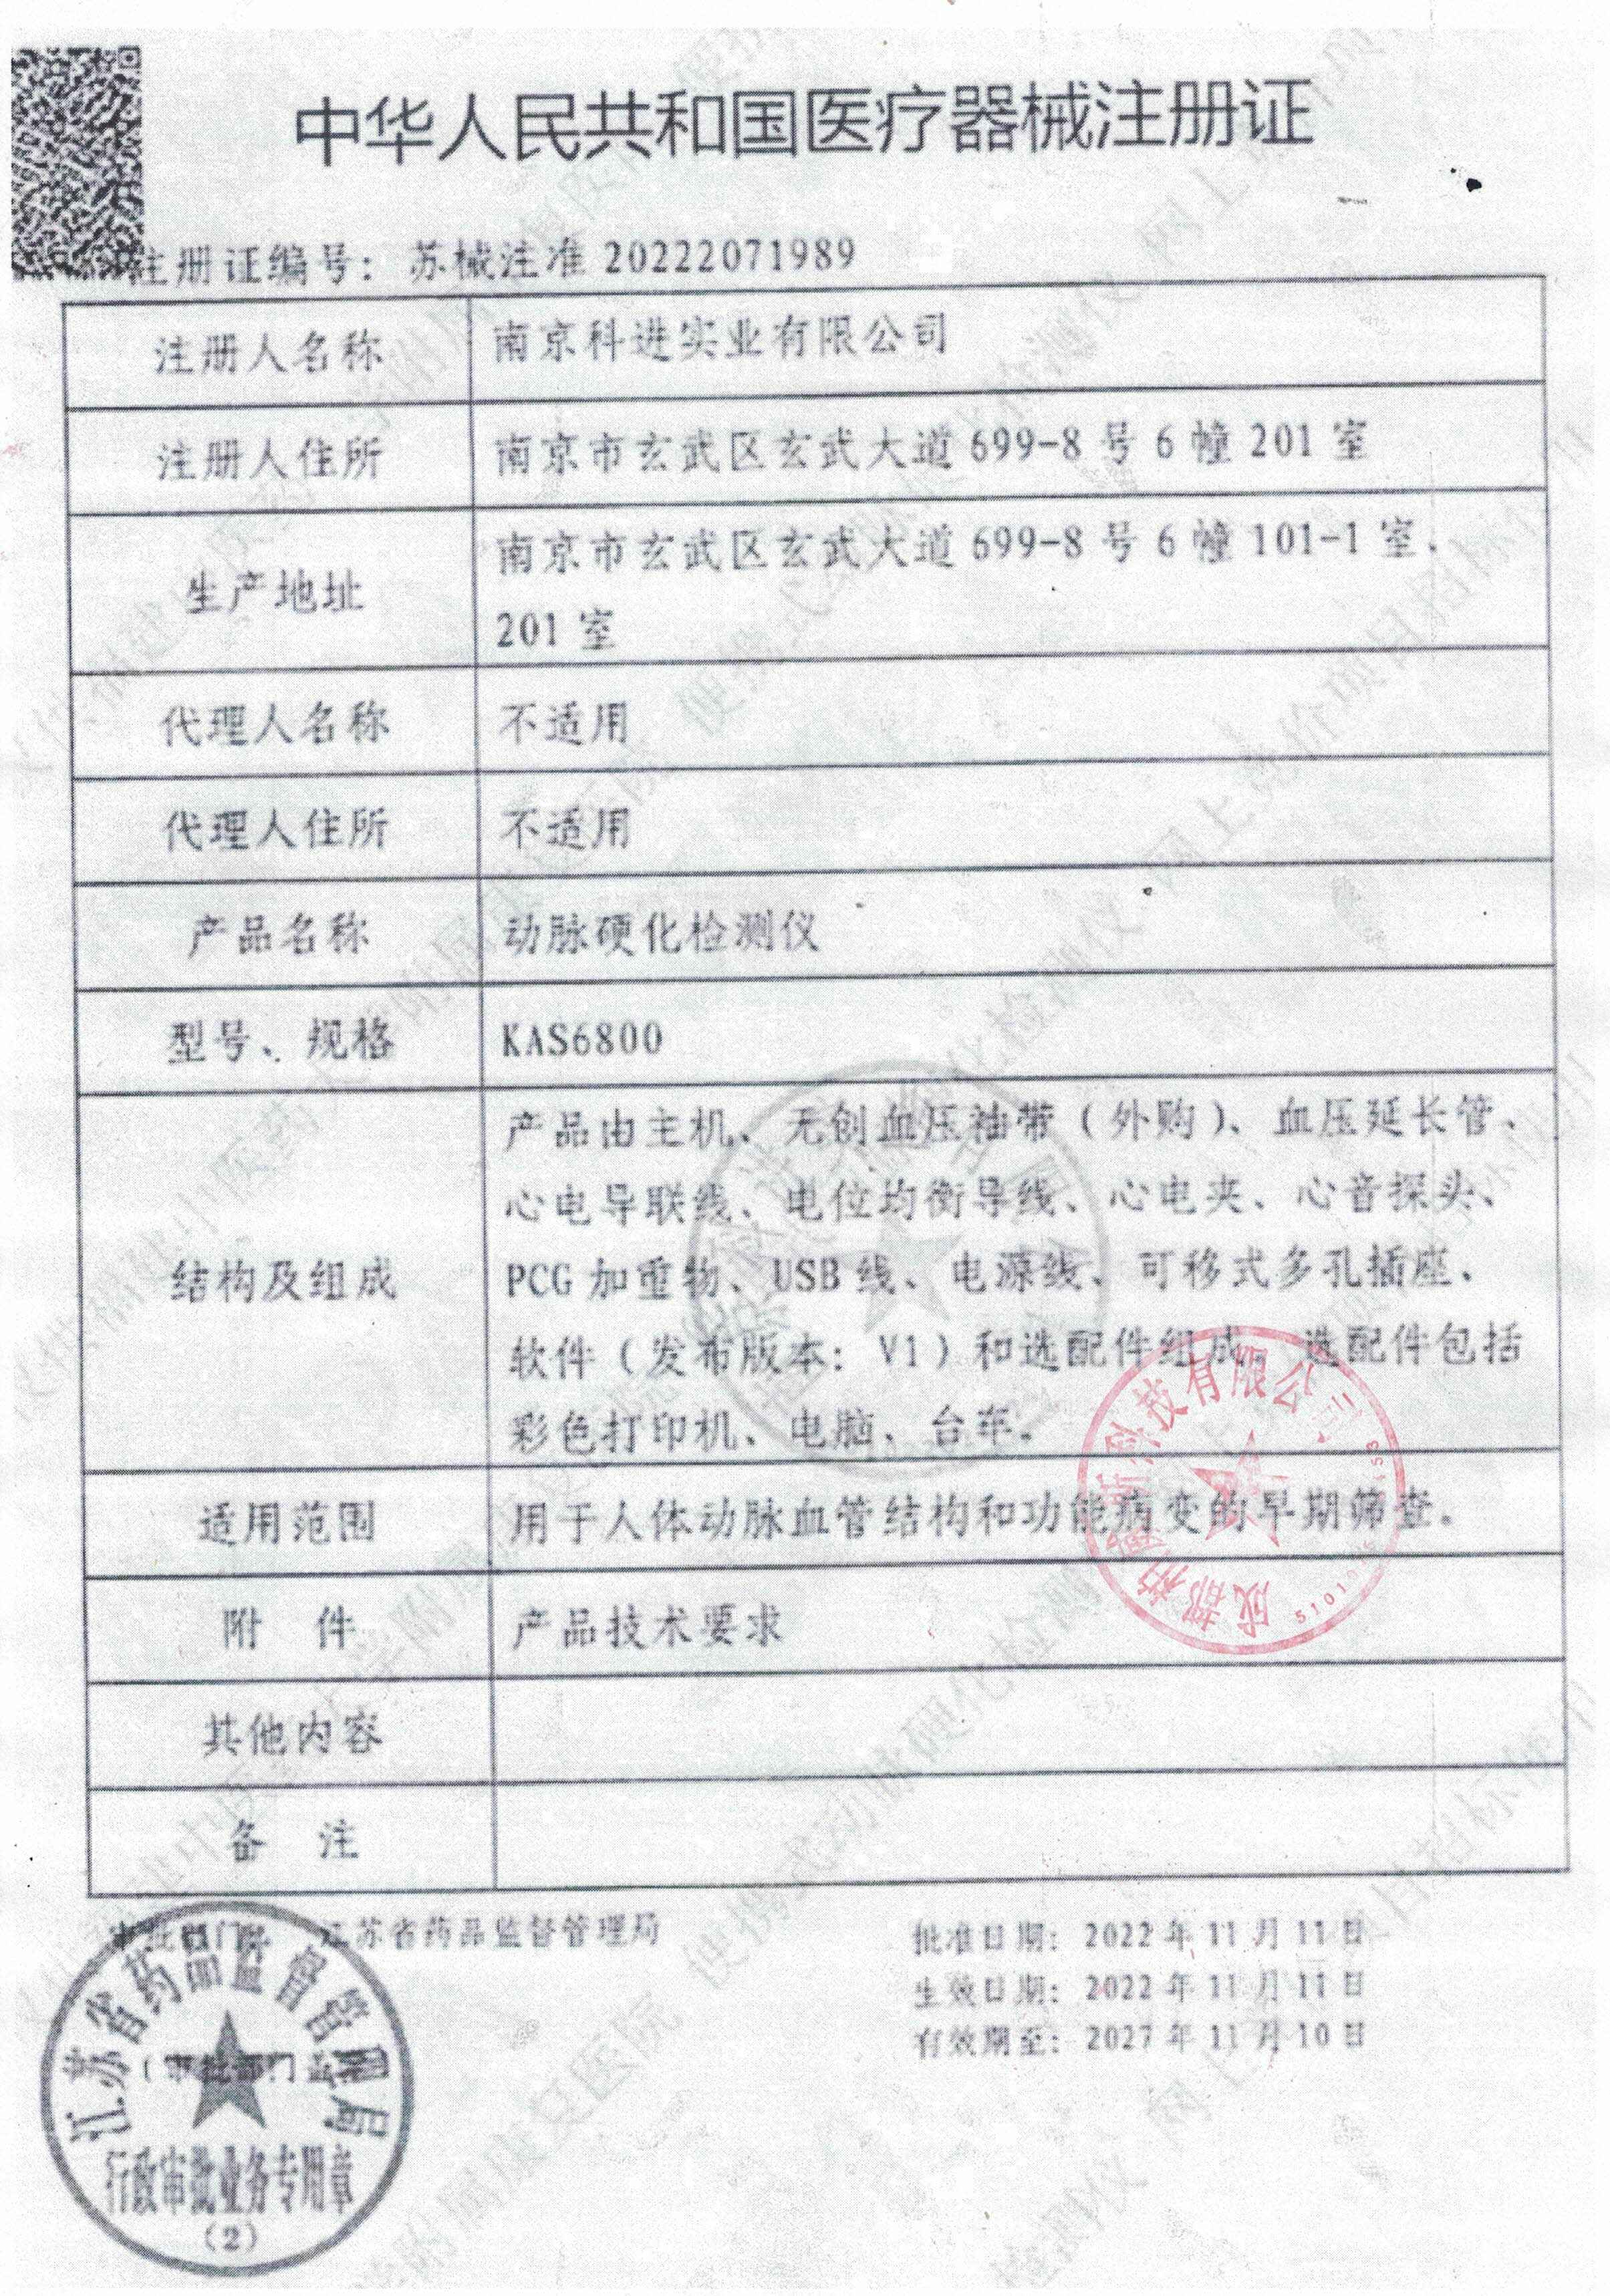 中华人民共和国医疗器械注册证
注册证编号：苏械注准 20222071989
注册人名称
南京科进实业有限公司
注册人住所
南京市玄武区玄武大道 699-8 号 6 幢 201 室
生产地址
南京市玄武区玄武大道 699-8 号 6 幢 101-1 室、
201 室
代理人名称
不适用
代理人住所
不适用
产品名称
动脉硬化检测仪
型号、规格
KAS6800
结构及组成
产品由主机、无创血压袖带（外购）、血压延长管、
心电导联线、电位均衡导线、心电夹、心音探头、
PCG 加重物、USB 线、电源线、可移式多孔插座、
软件（发布版本：V1）和选配件组成。选配件包括
彩色打印机、电脑、台车。
适用范围
用于人体动脉血管结构和功能病变的早期筛查。
附 件
产品技术要求
其他内容
备 注
审批部门： 江苏省药品监督管理局
批准日期：2022 年 11 月 11 日
生效日期：2022 年 11 月 11 日
有效期至：2027 年 11 月 10 日
江苏省药品监督管理局
（审批部门盖章）
行政审批业务专用章
（2）
科技有限公司